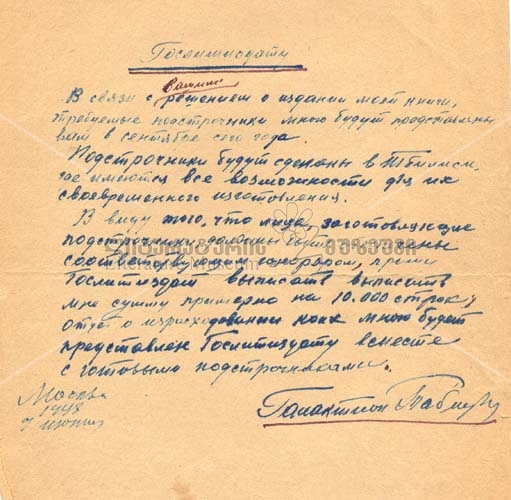 Гослитиздату
вашим
В связи с решением о издании моей книги,
требуемые подстрочники мною будут представлены
вам в сентябре сего года.
Подстрочники будут сделаны в Тбилиси,
где имеются все возможности для их
своевременного изготовления.
В виду того, что лица, заготовляющие
подстрочники должны быть
соответствующим гонораром, прошу
Гослитиздат выписать выписать
мне сумму примерно на 10.000 строк,
отчет о израсходовании коих мною будет
представлен Гослитиздату вместе
с готовыми подстрочниками.
Москва
1948
7 июня
Галактион Табидзе
ლიტერატურის მუზეუმი
Literature Museum